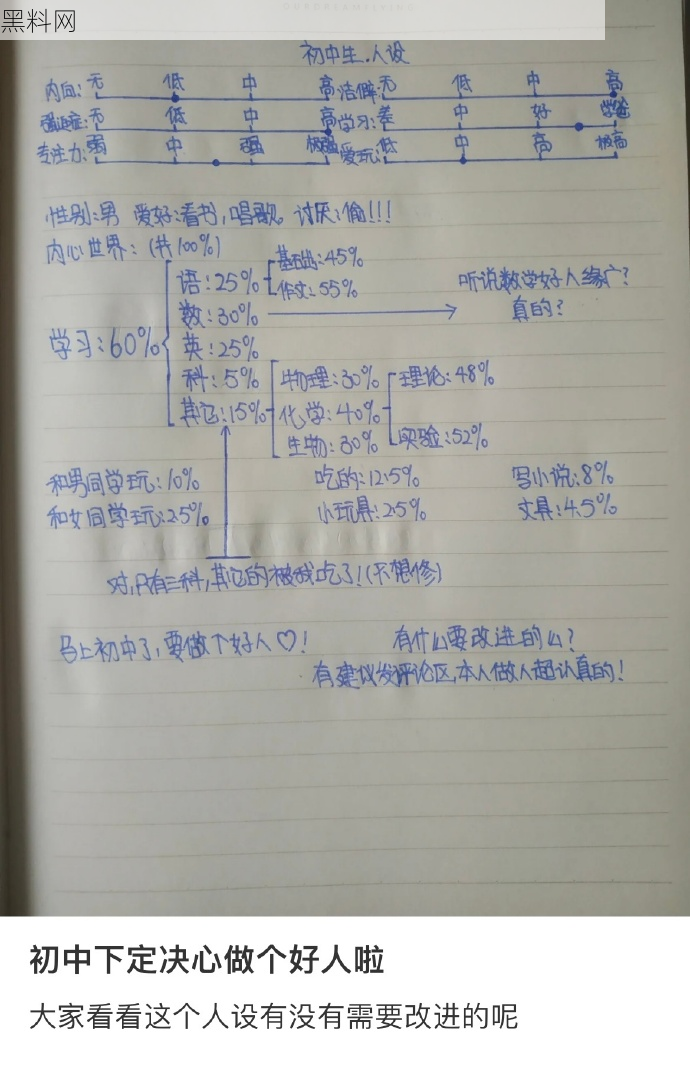 黑料网
OURDREAMILYING
初中生.人设
内向:无 低 中 高 洁癖:无 低 中 高
强迫症:无 低 中 高 学习:差 中 好 学爸
专注力:弱 中 强 极强 爱玩:低 中 高 极高
性别:男 爱好:看书,唱歌。讨厌:偷!!!
内心世界:(共100%)
学习:60%
语:25%
基础:45%
作文:55%
数:30%
听说数学好人缘广?
真的?
英:25%
科:5%
其它:15%
物理:30%
化学:40%
生物:30%
理论:48%
实验:52%
和男同学玩:10% 吃的:12.5% 写小说:8%
和女同学玩:2.5% 小玩具:2.5% 文具:4.5%
对,只有三科,其它的被我吃了!(不想修)
马上初中了,要做个好人♡! 有什么要改进的么?
有建议发评论区,本人做人超认真的!
初中下定决心做个好人啦
大家看看这个人设有没有需要改进的呢